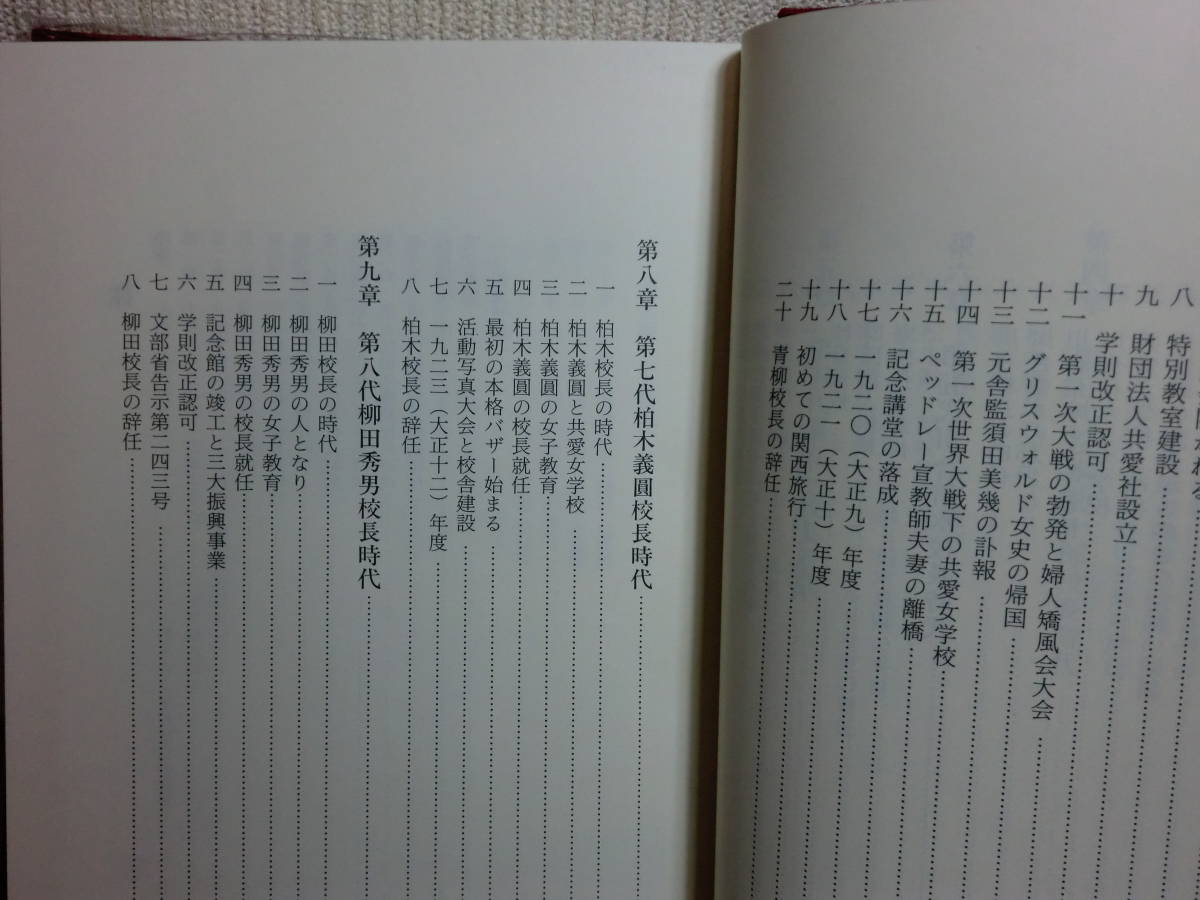 八　特別教室建設
九　財団法人共愛社設立
十　学則改正認可
十一　第一次大戦の勃発と婦人矯風会大会
十二　グリスウォルド女史の帰国
十三　元舎監須田美幾の訃報
十四　第一次世界大戦下の共愛女学校
十五　ペッドレー宣教師夫妻の離橋
十六　記念講堂の落成
十七　一九二〇（大正九）年度
十八　一九二一（大正十）年度
十九　初めての関西旅行
二十　青柳校長の辞任
第八章　第七代柏木義圓校長時代
一　柏木校長の時代
二　柏木義圓と共愛女学校
三　柏木義圓の女子教育
四　柏木義圓の校長就任
五　最初の本格バザー始まる
六　活動写真大会と校舎建設
七　一九二三（大正十二）年度
八　柏木校長の辞任
第九章　第八代柳田秀男校長時代
一　柳田校長の時代
二　柳田秀男の人となり
三　柳田秀男の女子教育
四　柳田秀男の校長就任
五　記念館の竣工と三大振興事業
六　学則改正認可
七　文部省告示第二四三号
八　柳田校長の辞任